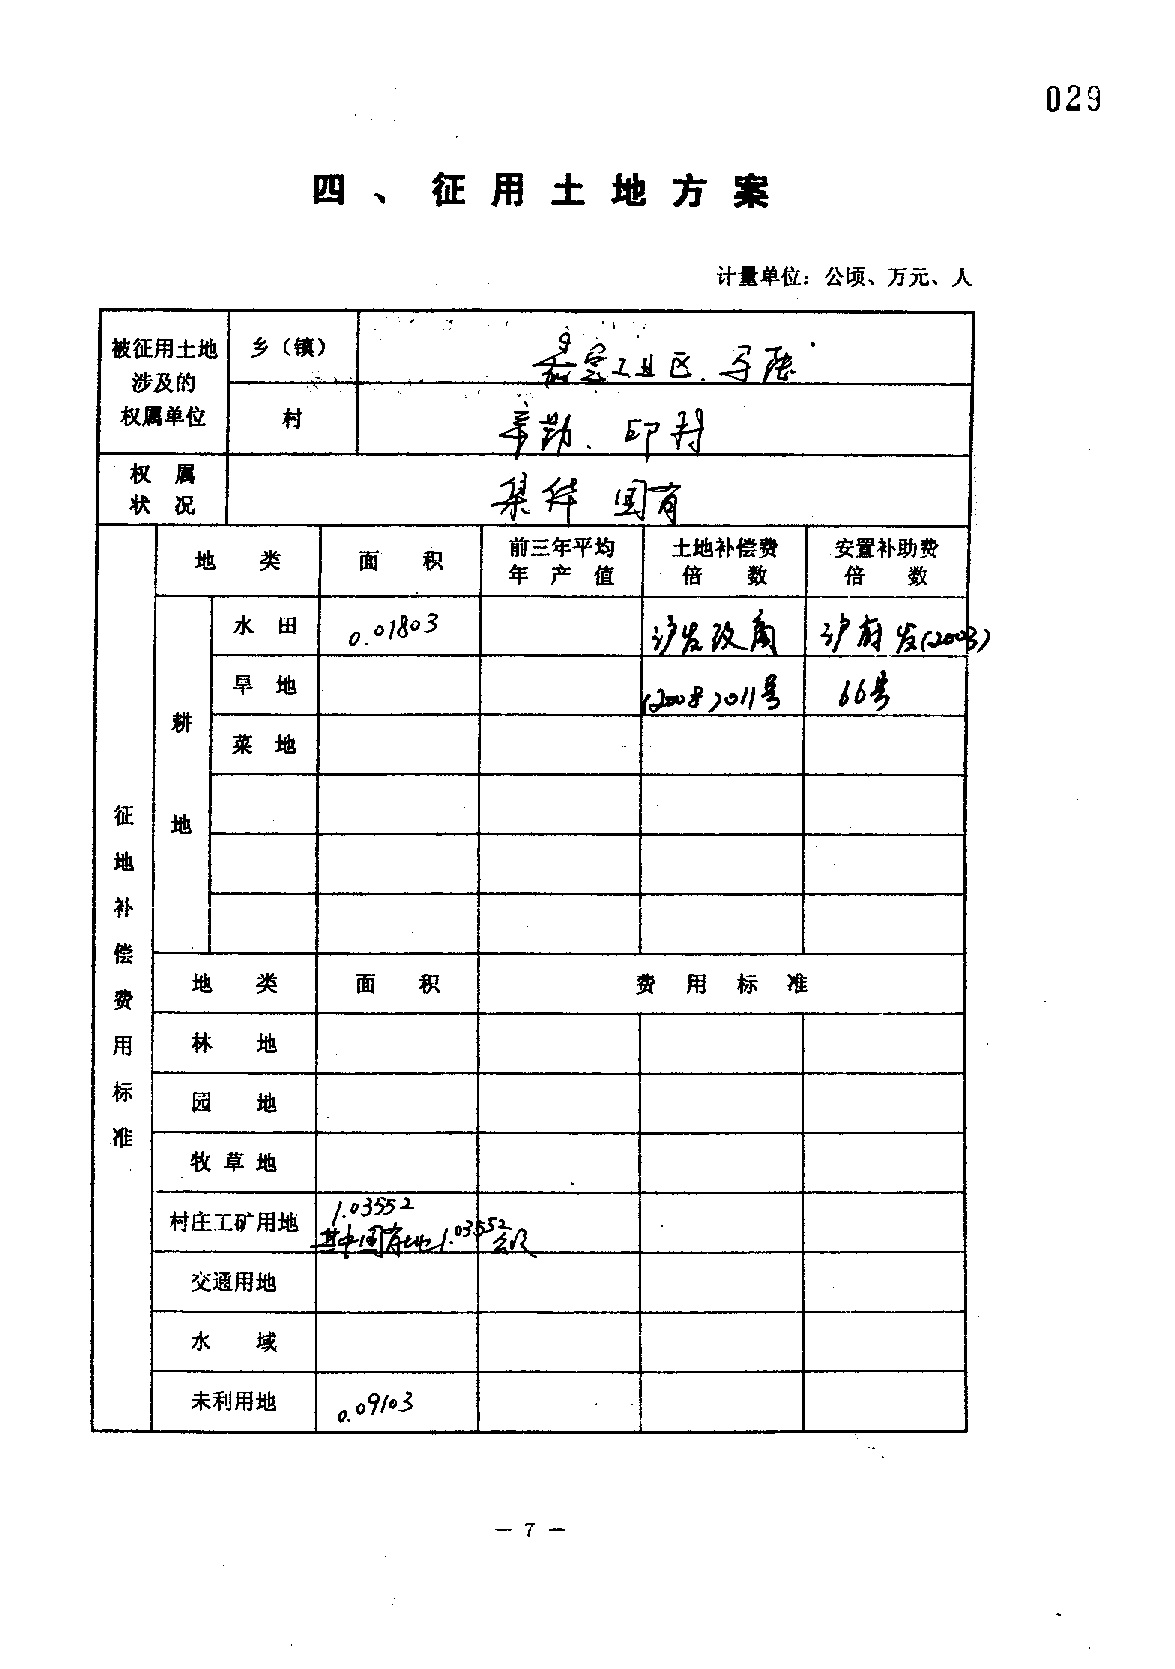 029
四、征用土地方案
计量单位：公顷、万元、人
被征用土地
涉及的
权属单位
乡（镇）
嘉定工业区、马陆
村
辛勤、印村
权属
状况
集体 国有
征地补偿费用标准
地类
面积
前三年平均
年产值
土地补偿费
倍数
安置补助费
倍数
耕地
水田
0.01803
沪发改商
沪府发(2003)
旱地
(2008)011号
66号
菜地
地类
面积
费用标准
林地
园地
牧草地
村庄工矿用地
1.03552
其中国有地1.03552公顷
交通用地
水域
未利用地
0.09103
— 7 —